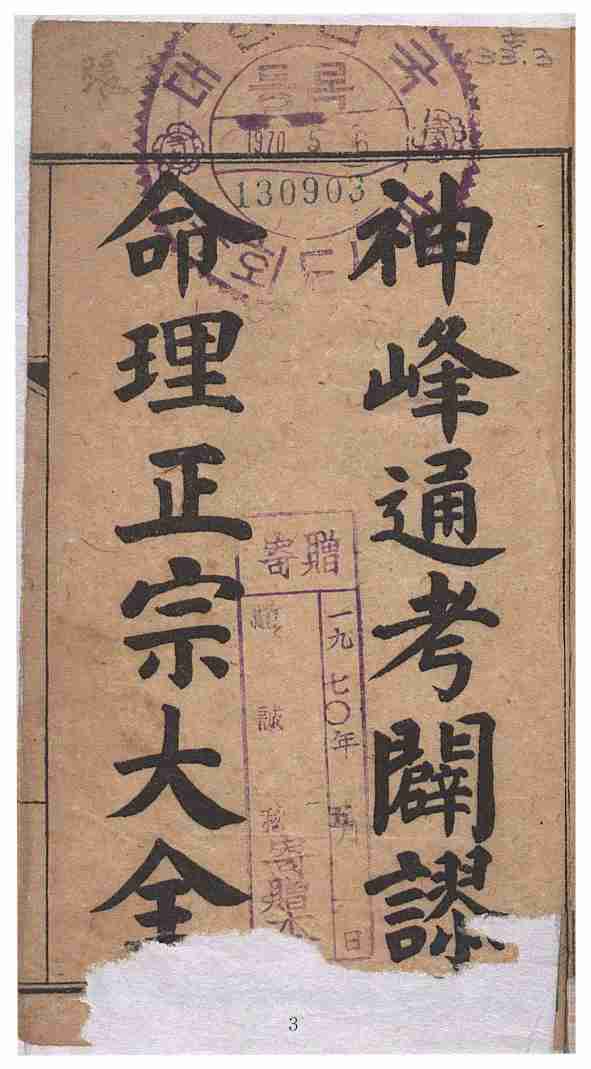 神峰通考闢謬
命理正宗大全
등록
1970 5 6
130903
寄贈
一九七〇年 五月 日
誠
寄贈
33.3
3